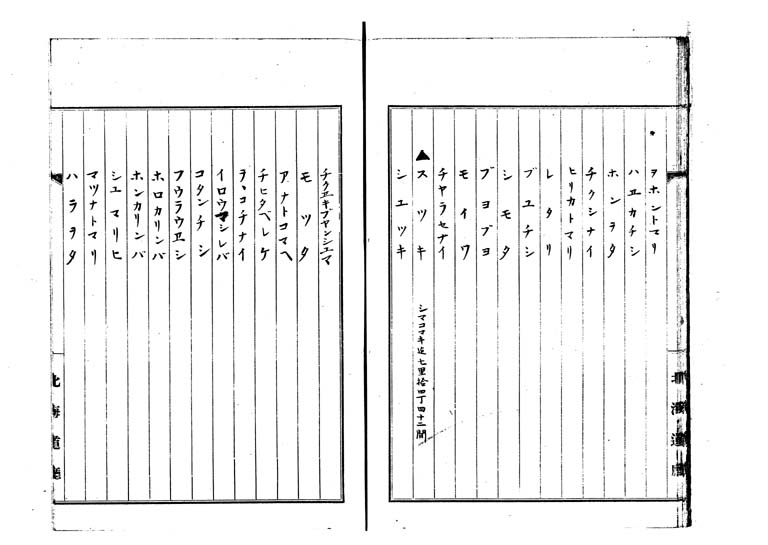 ヲホントマリ
ハヱカチシ
ホンヲタ
チクシナイ
ヒリカトマリ
レタリ
ブユチシ
シモタ
ブヨブヨ
モイワ
チヤラセナイ
▲スツキ シマコマキ迄七里拾四丁四十二間
シユツキ
北海道庁
チクヱキプヤンシエマ
モツタ
アナトコマヘ
チヒタペレケ
ヲヽコチナイ
イロウマシレバ
コタンチシ
フウラウヱシ
ホロカリンバ
ホンカリンバ
シユマリヒ
マツナトマリ
ハラヲタ
北海道廳